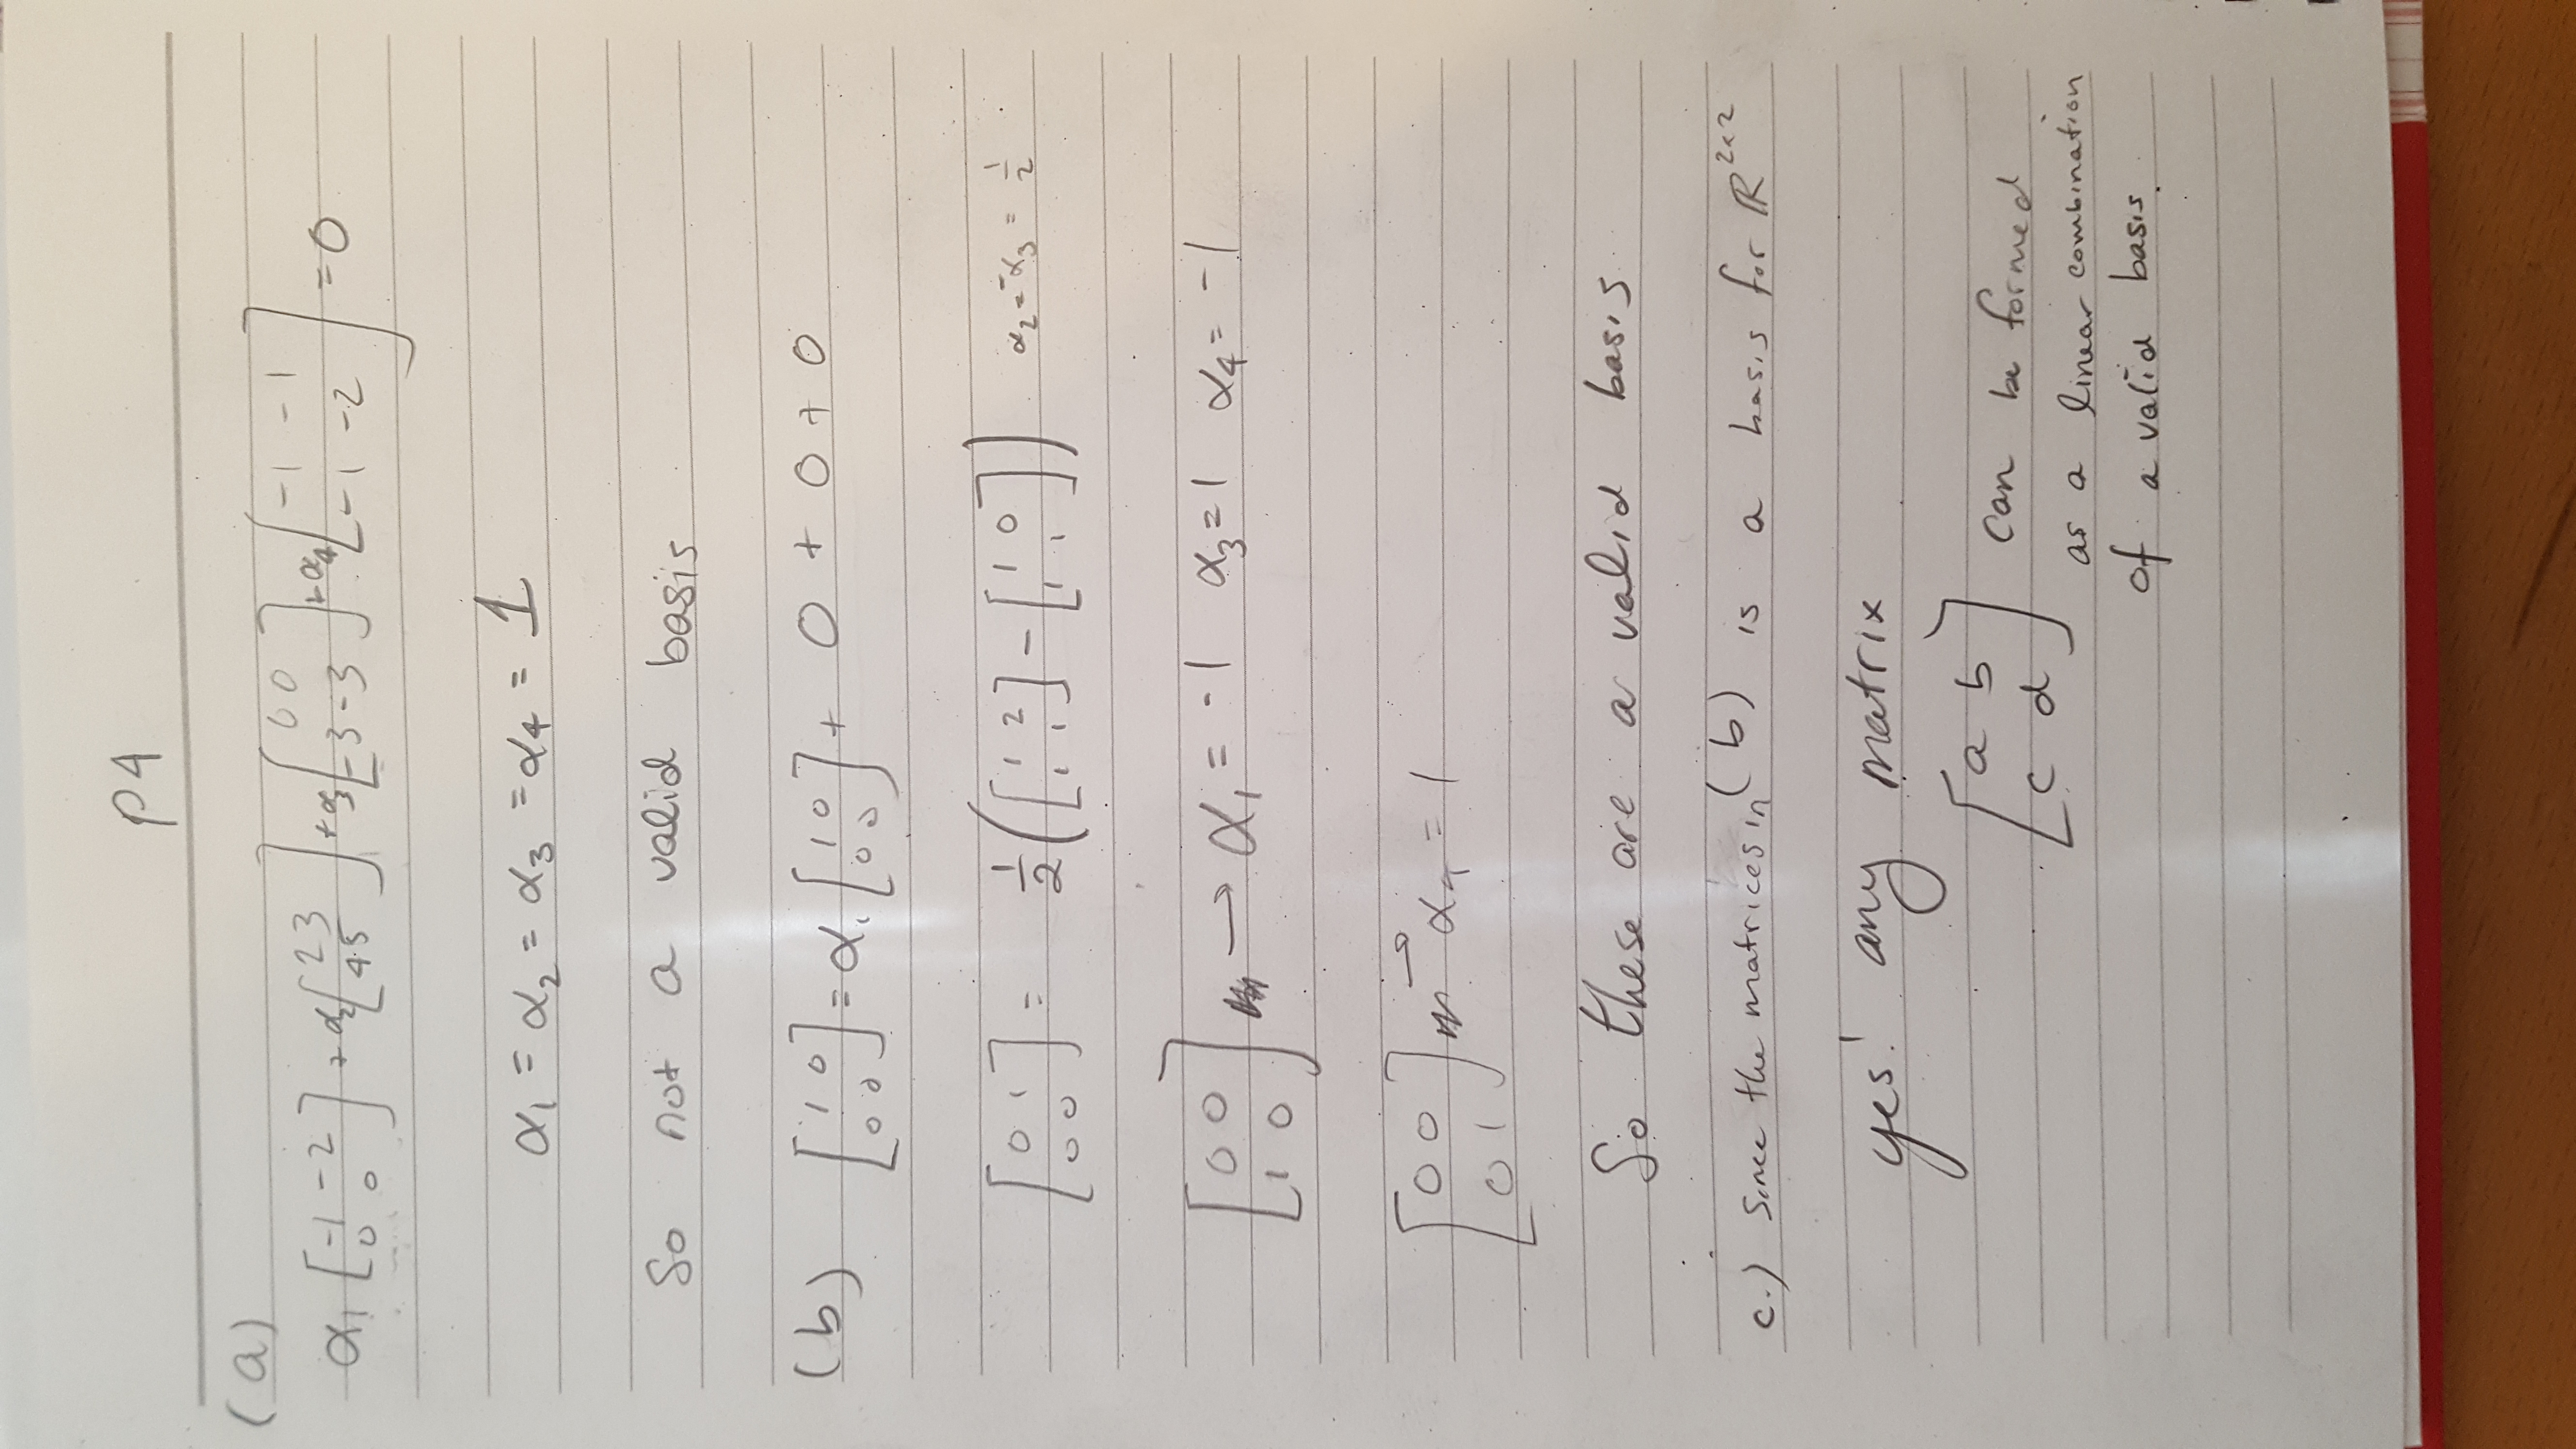 P4
(a)
α₁ [-1 -2; 0 0] + α₂ [2 3; 4 5] + α₃ [0 0; -3 -3] + α₄ [-1 -1; -1 -2] = 0
α₁ = α₂ = α₃ = α₄ = 1
So not a valid basis
(b) [1 0; 0 0] = α₁ [1 0; 0 0] + 0 + 0 + 0
[0 1; 0 0] = 1/2 ([1 2; 1 1] - [1 0; 1 1]) α₂ = -α₃ = 1/2
[0 0; 1 0] → α₁ = -1 α₃ = 1 α₄ = -1
[0 0; 0 1] → α₄ = 1
So these are a valid basis
c.) Since the matrices in (b) is a basis for ℝ²ˣ²
yes! any matrix
[a b; c d] can be formed
as a linear combination
of a valid basis.